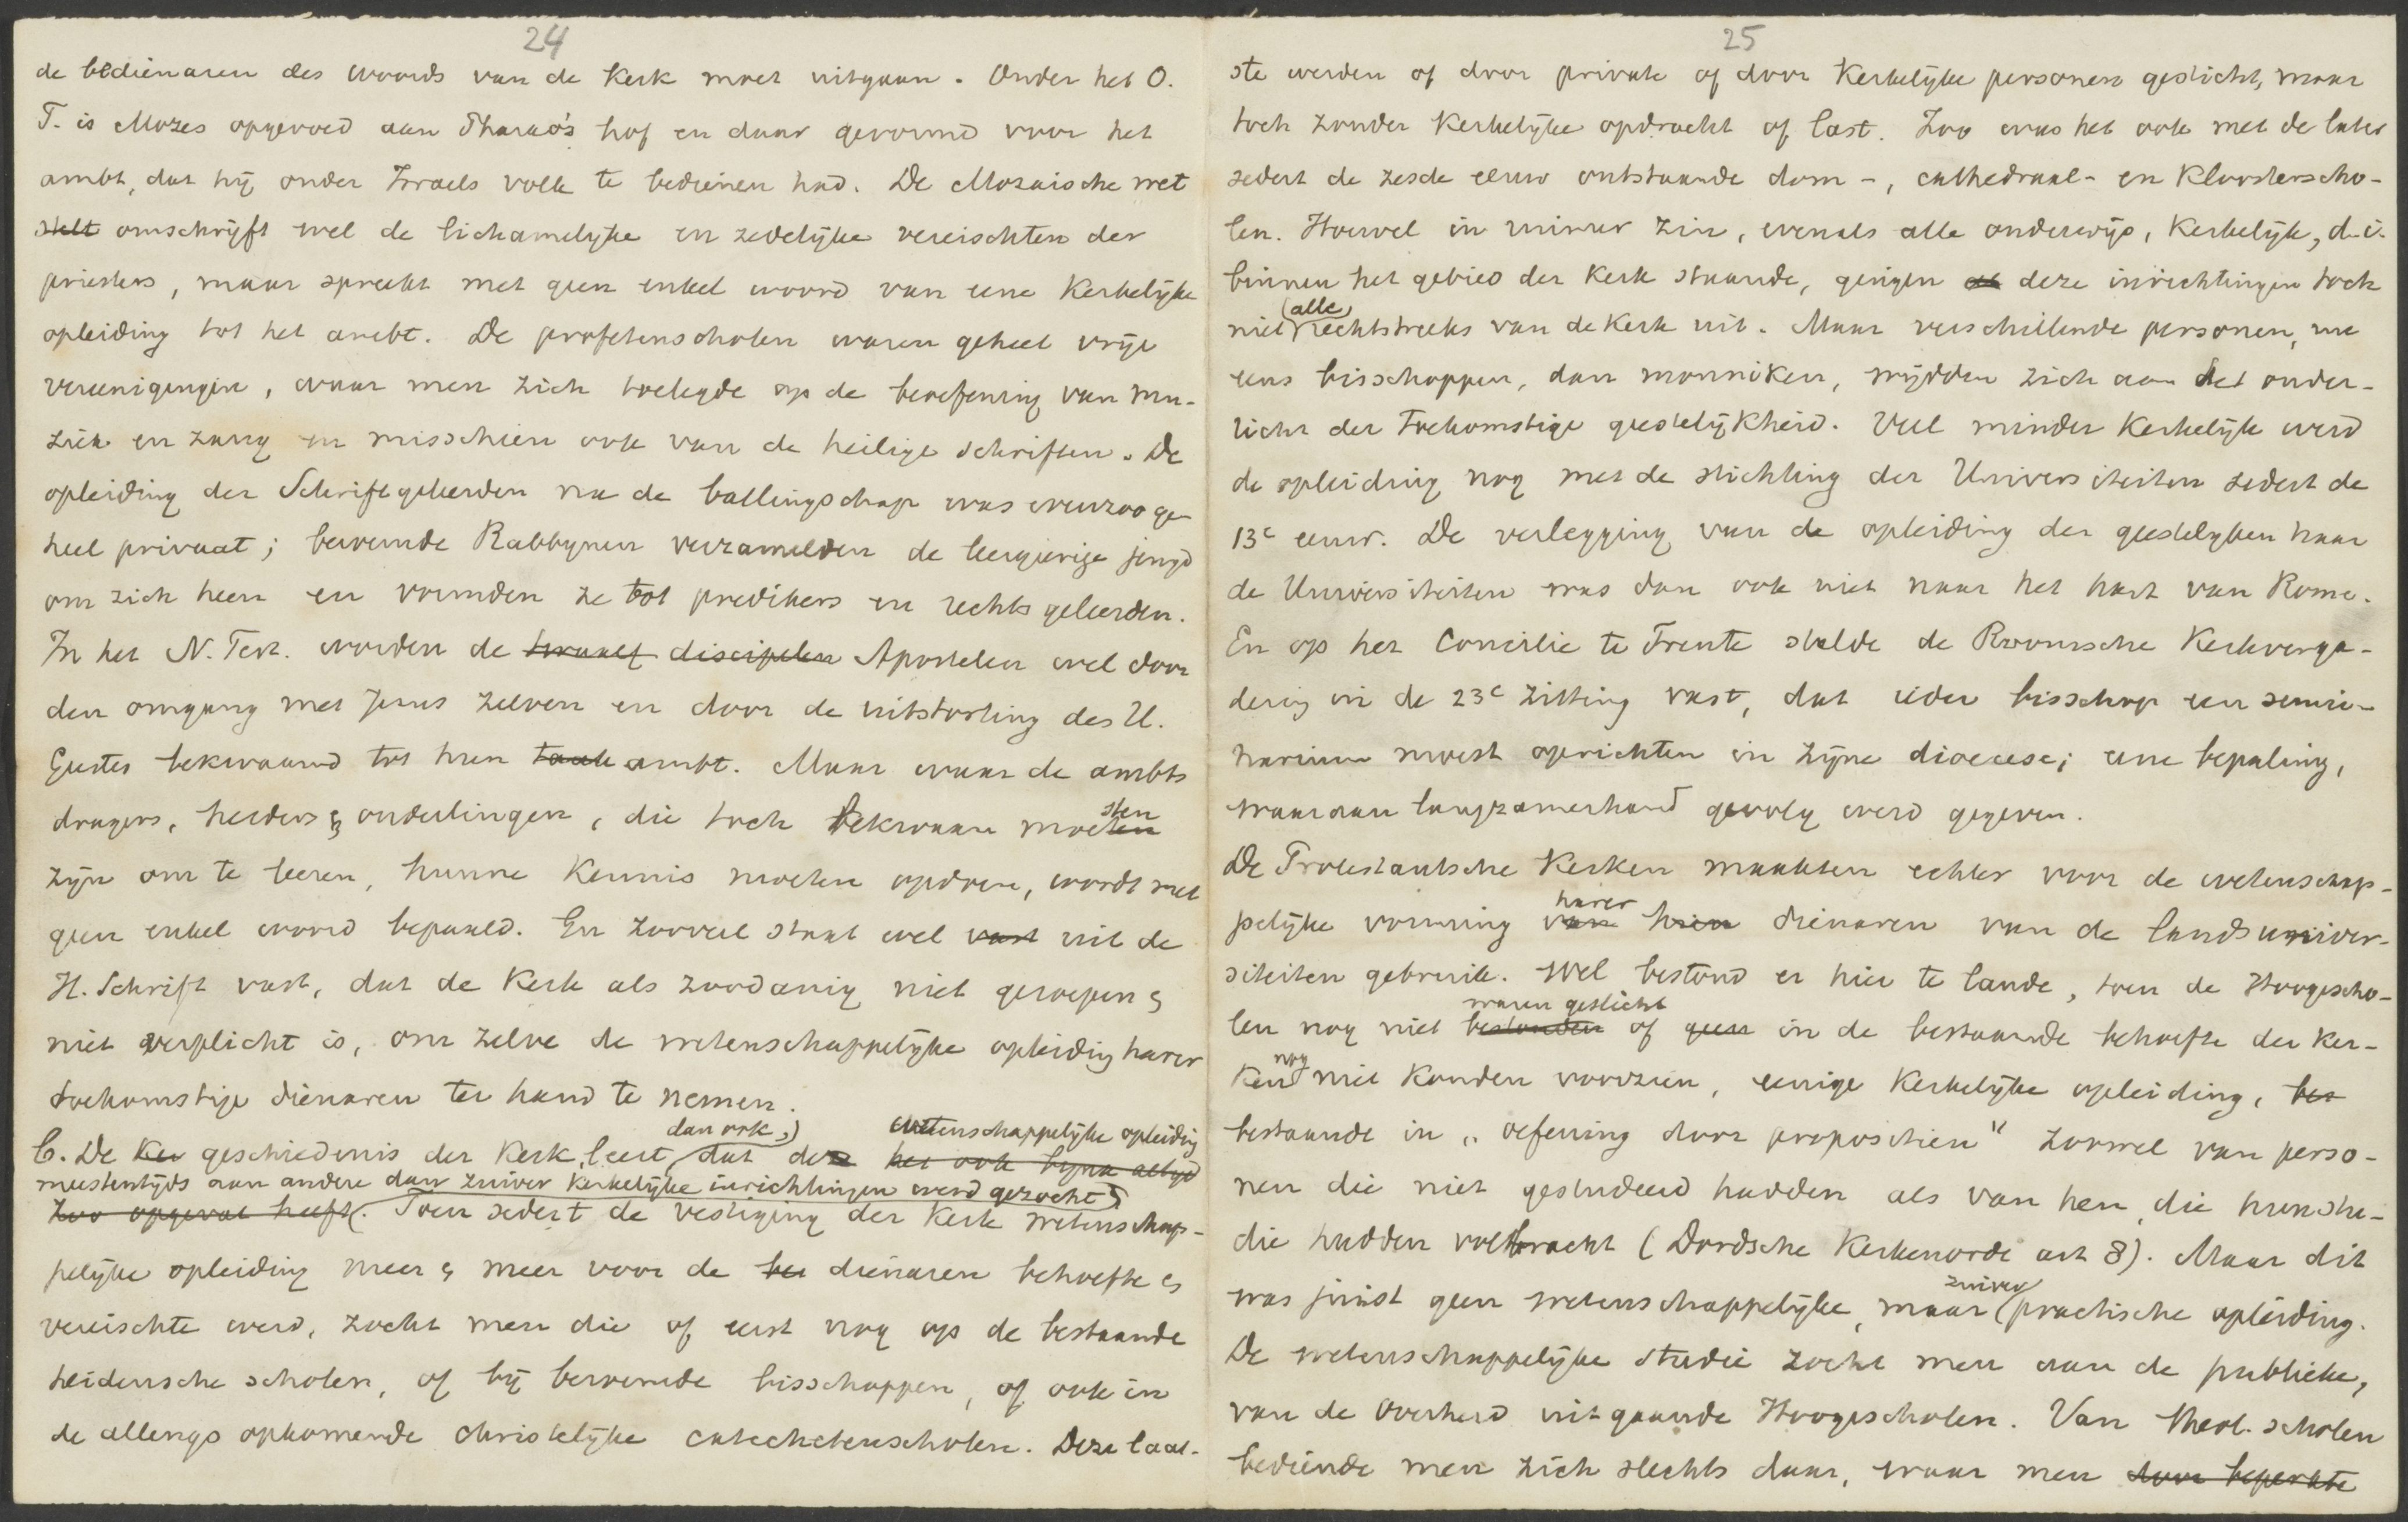 24
de bedienaren des woords van de Kerk moet uitgaan. Onder het O.
T. is Mozes opgevoed aan Pharao's hof en daar gevormd voor het
ambt, dat hij onder Israels volk te bedienen had. De Mozaische wet
stelt omschrijft wel de lichamelijke en zedelijke vereischten der
priesters, maar spreekt met geen enkel woord van eene Kerkelijke
opleiding tot het ambt. De profetenscholen waren geheel vrije
vereenigingen, waar men zich toelegde op de beoefening van mu-
ziek en zang en misschien ook van de heilige schriften. De
opleiding der Schriftgeleerden na de ballingschap was evenzoo ge-
heel privaat; beroemde Rabbijnen verzamelden de leergierige jeugd
om zich heen en vormden ze tot predikers en rechtsgeleerden.
In het N. Test. worden de twaalf discipelen Apostelen wel door
den omgang met Jezus zelven en door de uitstorting des H.
Geestes bekwaamd tot hun taak ambt. Maar waar de ambts
dragers, herders & ouderlingen, die toch bekwaam moeten
sten
zijn om te leeren, hunne Kennis moeten opdoen, wordt met
geen enkel woord bepaald. En zooveel staat wel vast uit de
H. Schrift vast, dat de Kerk als zoodanig niet geroepen &
niet verplicht is, om zelve de wetenschappelijke opleiding harer
toekomstige dienaren ter hand te nemen.
dan ook, wetenschappelijke opleiding
b. De Ker geschiedenis der Kerk leert, dat deze het ook bijna altijd
meestentijds aan andere dan zuiver Kerkelijke inrichtingen werd gezocht
zoo opgevat heeft. Toen sedert de vestiging der Kerk wetenschap-
pelijke opleiding meer & meer voor de be dienaren behoefte &
vereischte werd, zocht men die of eerst nog op de bestaande
heidensche scholen, of bij beroemde bisschoppen, of ook in
de allengs opkomende christelijke catechetenscholen. Deze laat-
25
ste werden of door private of door Kerkelijke personen gesticht, maar
toch zonder Kerkelijke opdracht of last. Zoo was het ook met de later
sedert de zesde eeuw ontstaande dom-, cathedraal- en Kloosterscho-
len. Hoewel in ruimer zin, evenals alle onderwijs, Kerkelijk, d.i.
binnen het gebied der Kerk staande, gingen deze inrichtingen toch
alle
niet rechtstreeks van de Kerk uit. Maar verschillende personen, nu
eens bisschoppen, dan monniken, wijdden zich aan het onder-
richt der toekomstige geestelijkheid. Veel minder Kerkelijk werd
de opleiding nog met de stichting der Universiteiten sedert de
13e eeuw. De verlegging van de opleiding der geestelijken naar
de Universiteiten was dan ook niet naar het hart van Rome.
En op het Concilie te Trente stelde de Roomsche Kerkverga-
dering in de 23e zitting vast, dat ieder bisschop een semi-
narium moest oprichten in zijne dioecese; eene bepaling,
waaraan langzamerhand gevolg werd gegeven.
De Protestantsche Kerken maakten echter voor de wetenschap-
harer
pelijke vorming van hun dienaren van de landsuniver-
siteiten gebruik. Wel bestond er hier te lande, toen de Hoogescho-
waren gesticht
len nog niet bestonden of geen in de bestaande behoefte der Ker-
nog
ken niet konden voorzien, eenige Kerkelijke opleiding, bes
bestaande in "oefening door propositien" zoowel van perso-
nen die niet gestudeerd hadden als van hen, die hun stu-
die hadden volbracht (Dordsche Kerkenorde art 8). Maar dit
zuiver
was juist geen wetenschappelijke, maar practische opleiding.
De wetenschappelijke studie zocht men aan de publieke,
van de Overheid uitgaande Hoogescholen. Van theol. scholen
bediende men zich slechts daar, waar men door beperkte